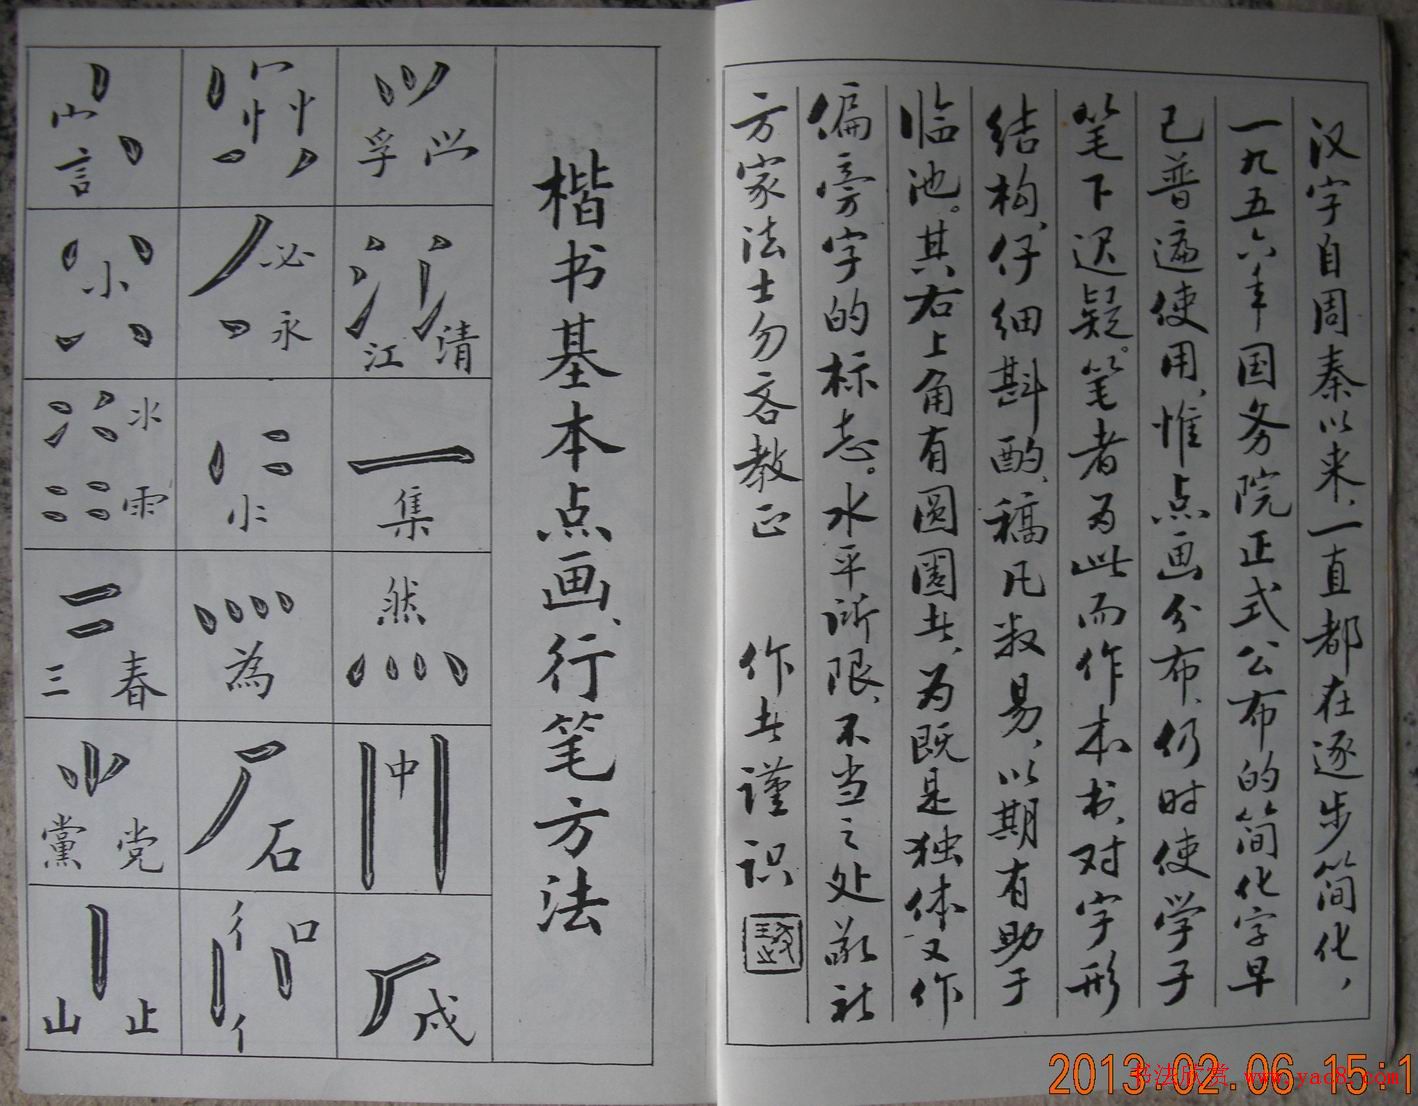 汉字自周秦以来，一直都在逐步简化，
一九五六年国务院正式公布的简化字早
已普遍使用，惟点画分布，仍时使学子
笔下迟疑。笔者为此而作本书，对字形
结构，仔细斟酌，稿凡数易，以期有助于
临池。其右上角有圆圈者，为既是独体又作
偏旁字的标志。水平所限，不当之处敬祈
方家法士勿吝教正 作者谨识
楷书基本点画、行笔方法
孚
江 清
集
然
中
成
冖 忄
必 永
小
為
石
彳 口 亻
宀 言
小
水 雨
三 春
黨 党
山 止
2013.02.06 15:1
书法欣赏 www.yac8.com